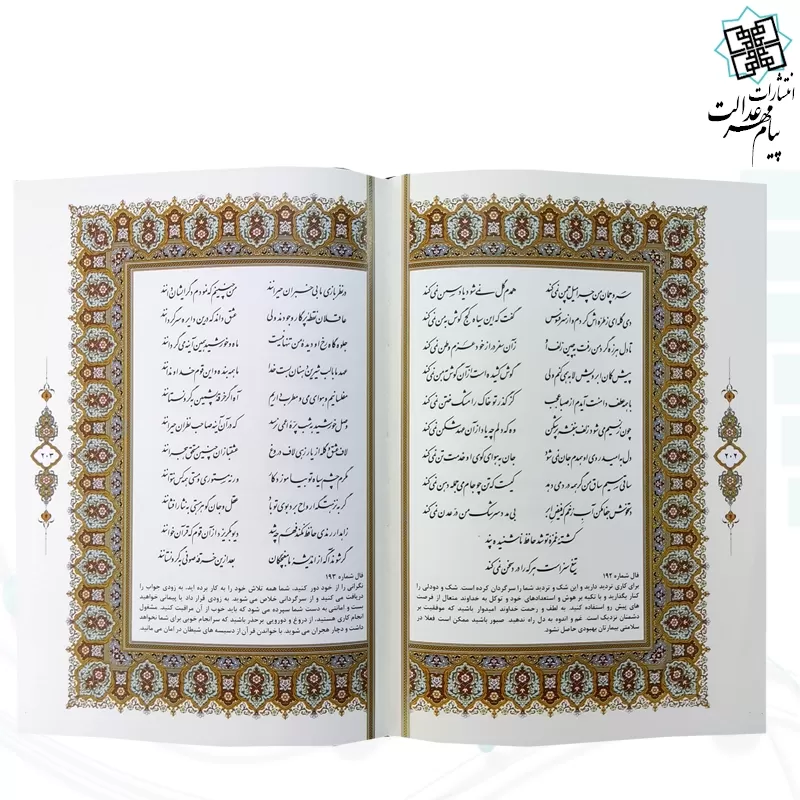 انتشارات
پیام مهر عدالت
سرو چمان من چرا میل چمن نمی‌کند همدم گل نمی‌شود یاد سمن نمی‌کند
دی گله‌ای ز طره‌اش کردم و از سر فسوس گفت که این سیاه کج گوش به من نمی‌کند
تا دل هرزه‌گرد من رفت به چین زلف او زان سفر دراز خود عزم وطن نمی‌کند
پیش کمان ابرویش لابه همی‌کنم ولی گوش کشیده است از آن گوش به من نمی‌کند
با همه عطف دامنت آیدم از صبا عجب کز گذر تو خاک را مشک ختن نمی‌کند
چون ز نسیم می‌شود زلف بنفشه پرشکن وه که دلم چه یاد از آن عهدشکن نمی‌کند
دل به امید روی او همدم جان نمی‌شود جان به هوای کوی او خدمت تن نمی‌کند
ساقی سیم ساق من گر همه درد می‌دهد کیست که تن چو جام می جمله دهن نمی‌کند
دستخوش جفا مکن آب رخم که فیض ابر بی مدد سرشک من در عدن نمی‌کند
کشته غمزه تو شد حافظ ناشنیده پند
تیغ سزاست هر که را درد سخن نمی‌کند
فال شماره ۱۹۲
برای کاری تردید دارید و این شک و تردید شما را سرگردان کرده است. شک و دودلی را
کنار بگذارید و با تکیه بر هوش و استعدادهای خود و توکل به خداوند متعال از فرصت
های پیش رو استفاده کنید. به لطف و رحمت خداوند امیدوار باشید که موفقیت بر
دشمنان نزدیک است. غم و اندوه به دل راه ندهید. صبور باشید ممکن است فعلا در
سلامتی بیمارتان بهبودی حاصل نشود.
۲۰۲
در نظربازی ما بی‌خبران حیرانند من چنینم که نمودم دگر ایشان دانند
عاقلان نقطه پرگار وجودند ولی عشق داند که در این دایره سرگردانند
جلوه‌گاه رخ او دیده من تنها نیست ماه و خورشید همین آینه می‌گردانند
عهد ما با لب شیرین‌دهنان بست خدا ما همه بنده و این قوم خداوندانند
مفلسانیم و هوای می و مطرب داریم آه اگر خرقه پشمین به گرو نستانند
وصل خورشید به شب‌پره اعمی نرسد که در آن آینه صاحب نظران حیرانند
لاف عشق و گله از یار زهی لاف دروغ عشقبازان چنین مستحق هجرانند
مگرم چشم سیاه تو بیاموزد کار ورنه مستوری و مستی همه کس نتوانند
گر به نزهتگه ارواح برد بوی تو باد عقل و جان گوهر هستی به نثار افشانند
زاهد ار رندی حافظ نکند فهم چه شد دیو بگریزد از آن قوم که قرآن خوانند
گر شوند آگه از اندیشه ما مغبچگان بعد از این خرقه صوفی به گرو نستانند
فال شماره ۱۹۳
نگرانی را از خود دور کنید، شما همه تلاش خود را به کار برده اید. به زودی جواب را
دریافت می کنید و از سرگردانی خلاص می شوید. به زودی قرار داد یا پیمانی خواهید
بست و امانتی به دست شما سپرده می شود که باید خوب از آن مراقبت کنید. مشغول
انجام کاری هستید. از دروغ و دورویی برحذر باشید که سرانجام خوبی برای شما نخواهد
داشت و دچار هجران می شوید. با خواندن قرآن از دسیسه های شیطان در امان می مانید.
۲۰۳